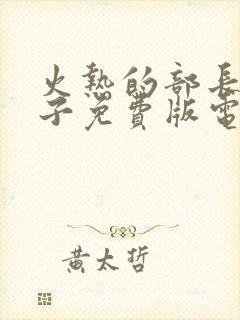 火熱的部長
子免費版電
黃太哲